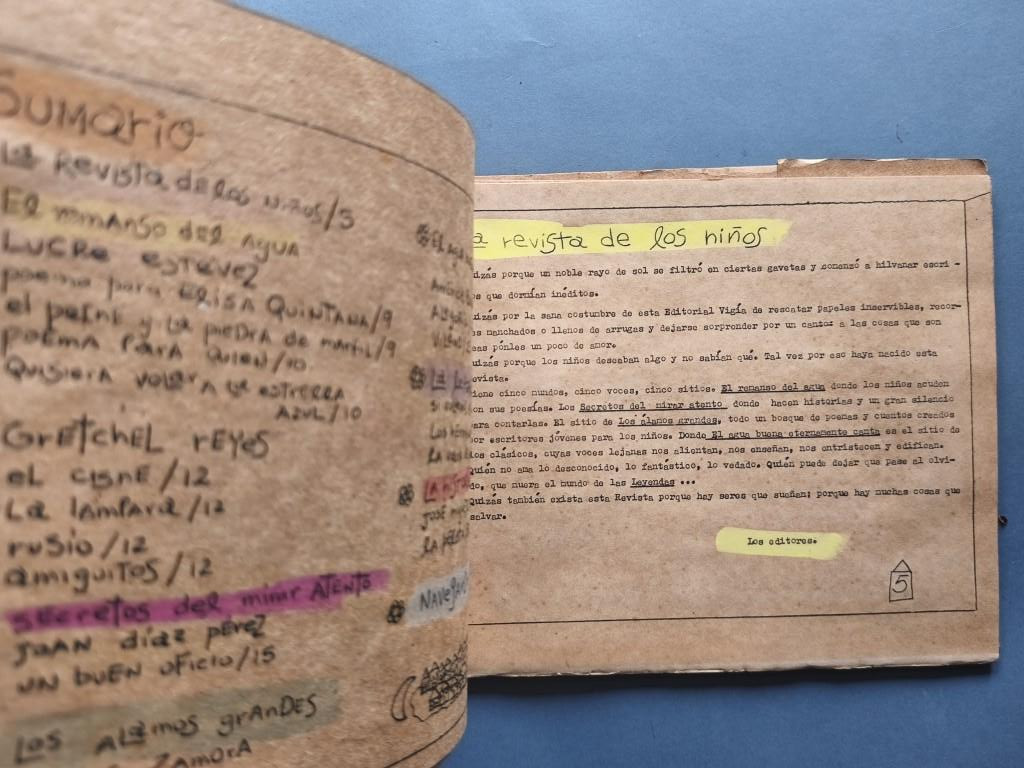 Sumario
La Revista de los niños/5
El remanso del agua
Lucre estevez
poema para ELISA QUINTANA/9
el peine y la piedra de marfil/9
poema para quien/10
Quisiera volar a la estrella
AZUL/10
GRETCHEL rEYes
eL cisne/12
La lampara/12
rusio/12
amiguitos/12
secretos del mirar ATENTO
JUAN díaz pérez
un buen oficio/15
Los ALamos grANDES
ZAMORA
Navega
a revista de los niños
izás porque un noble rayo de sol se filtró en ciertas gavetas y comenzó a hilvanar escri -
s que dormían inéditos.
izás por la sana costumbre de esta Editorial Vigía de rescatar papeles inservibles, recor-
s manchados o llenos de arrugas y dejarse sorprender por un canto: a las cosas que son
eas pónles un poco de amor.
uizás porque los niños deseaban algo y no sabían qué. Tal vez por eso haya nacido esta
evista.
iene cinco mundos, cinco voces, cinco sitios. El remanso del agua donde los niños acuden
on sus poesías. Los Secretos del mirar atento donde hacen historias y un gran silencio
ara contarlas. El sitio de Los álamos grandes, todo un bosque de poemas y cuentos creados
or escritores jóvenes para los niños. Donde El agua buena eternamente canta es el sitio de
os clásicos, cuyas voces lejanas nos alientan, nos enseñan, nos entristecen y edifican.
uién no ama lo desconocido, lo fantástico, lo vedado. Quién puede dejar que pase al olvi-
do, que muera el mundo de las Leyendas ...
Quizás también exista esta Revista porque hay seres que sueñan; porque hay muchas cosas que
salvar.
Los editores.
5